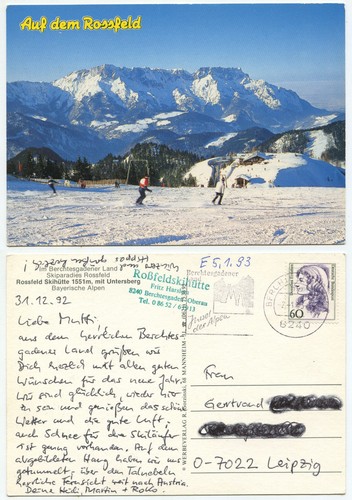 Auf dem Rossfeld
Im Berchtesgadener Land
Skiparadies Rossfeld
Rossfeld Skihütte 1551m, mit Untersberg
Bayerische Alpen
31.12.92
Roßfeldskihütte
8240 Berchtesgaden-Oberau
Tel. 0 86 52 /
E 5.1.93
Berchtesgadener
Land
Insel
der Alpen
60
8240
Liebe Mutti!
aus dem herrlichen Berchtes-
gadener Land grüßen wir
Dich herzlich mit allen guten
Wünschen für das neue Jahr.
Wir sind glücklich, wieder hier
zu sein und genießen das schöne
Wetter und die gute Luft,
auch Schnee für die Skiläufer
ist genug vorhanden. Auf dem
abgebildeten Hang haben wir uns
getummelt, über den Talnebeln
herrliche Fernsicht weit nach Austria.
Deine Heidi, Martin +
Frau
Gertraud
O-7022 Leipzig